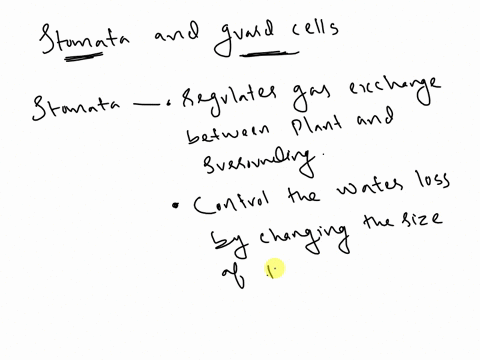 Stomata and guard cells
Stomata — • Regulates gas exchange
between Plant and
Surrounding.
• Control the water loss
by changing the size
of